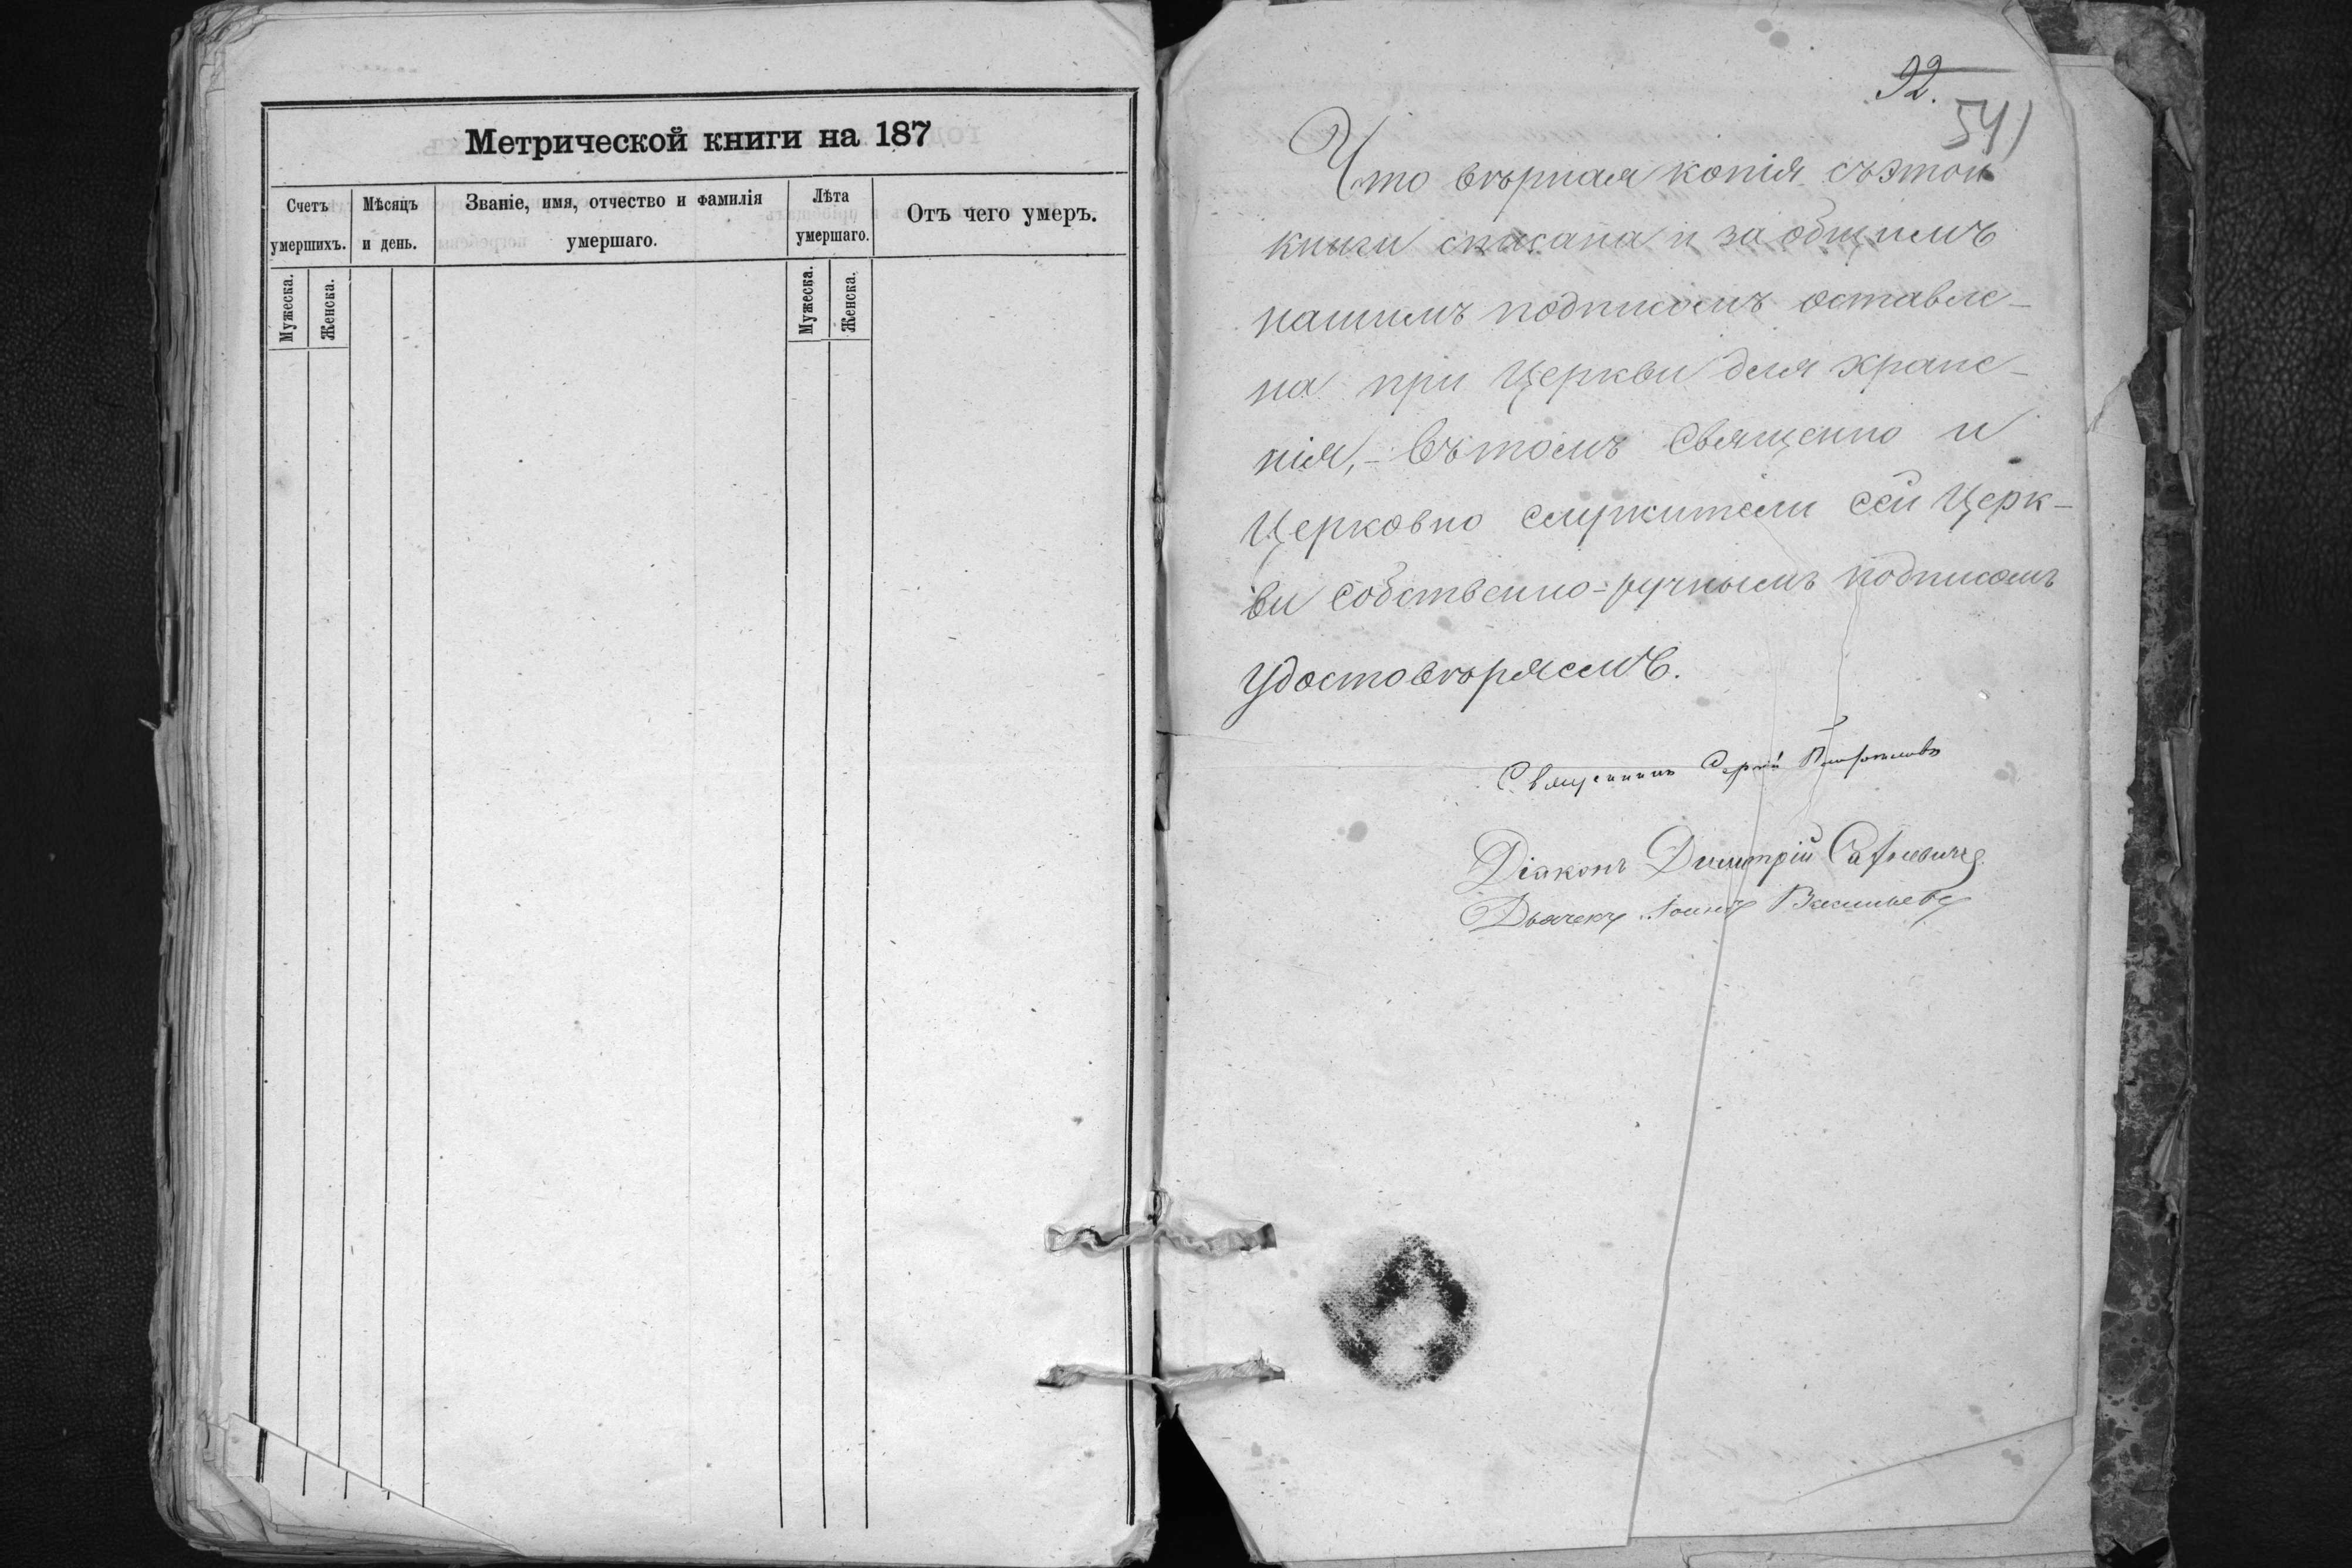 Метрической книги на 187
Счетъ умершихъ.
Мѣсяцъ и день.
Званіе, имя, отчество и фамилія умершаго.
Лѣта умершаго.
Отъ чего умеръ.
Мужеска.
Женска.
Мужеска.
Женска.
92.
541
Что вѣрная копія съ этой
книги списана и за общимъ
нашимъ подписомъ оставле-
на при Церкви для хране-
нія,- въ томъ Священно и
Церковно служители сей Церк-
ви собственно-ручнымъ подписомъ
удостовѣряемъ.
Священникъ Сергій
Діаконъ Димитрій
Дьячекъ Іоаннъ Васильевъ